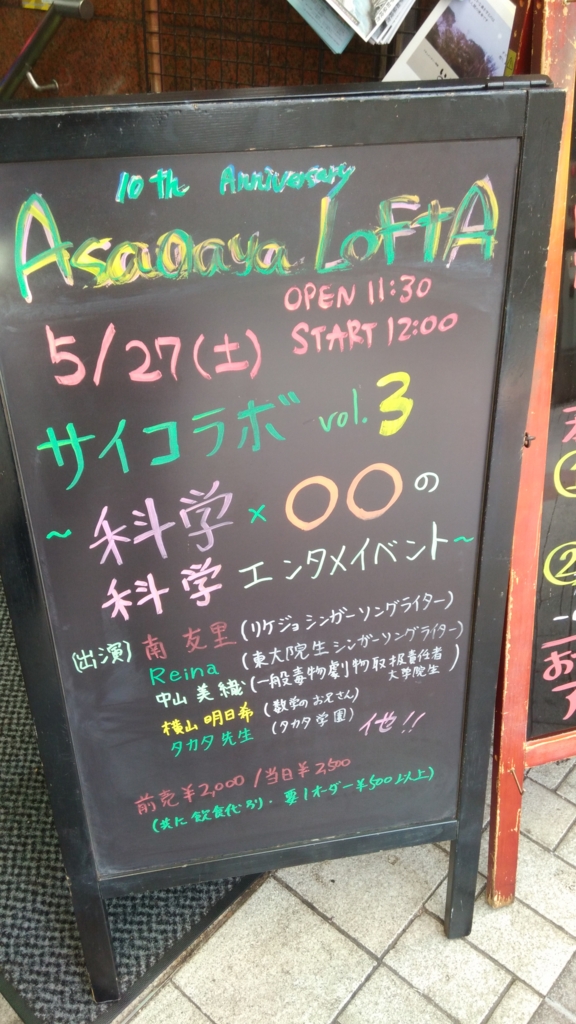 10th Anniversary
Asagaya LOFTA
OPEN 11:30
START 12:00
5/27(土)
サイコラボ vol.3
~科学×〇〇の
科学エンタメイベント~
(出演) 南 友里 (リケジョシンガーソングライター)
Reina (東大院生シンガーソングライター)
中山 美織 (一般毒物劇物取扱責任者 大学院生)
横山 明日希 (数学のお兄さん)
タカタ先生 (タカタ学園)
他!!
前売¥2,000/当日¥2,500
(共に飲食代別り・要1オーダー¥500以上)
①
②